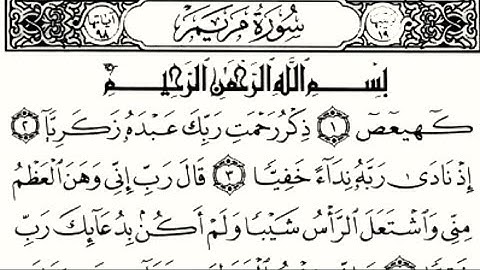 ترتيبها ١٩ سُورَةُ مَرْيَم آياتها ٩٨
بِسْمِ ٱللَّهِ ٱلرَّحْمَٰنِ ٱلرَّحِيمِ
كٓهيعٓصٓ ١ ذِكْرُ رَحْمَتِ رَبِّكَ عَبْدَهُۥ زَكَرِيَّآ ٢
إِذْ نَادَىٰ رَبَّهُۥ نِدَآءً خَفِيًّا ٣ قَالَ رَبِّ إِنِّى وَهَنَ ٱلْعَظْمُ
مِنِّى وَٱشْتَعَلَ ٱلرَّأْسُ شَيْبًا وَلَمْ أَكُنۢ بِدُعَآئِكَ رَبِّ